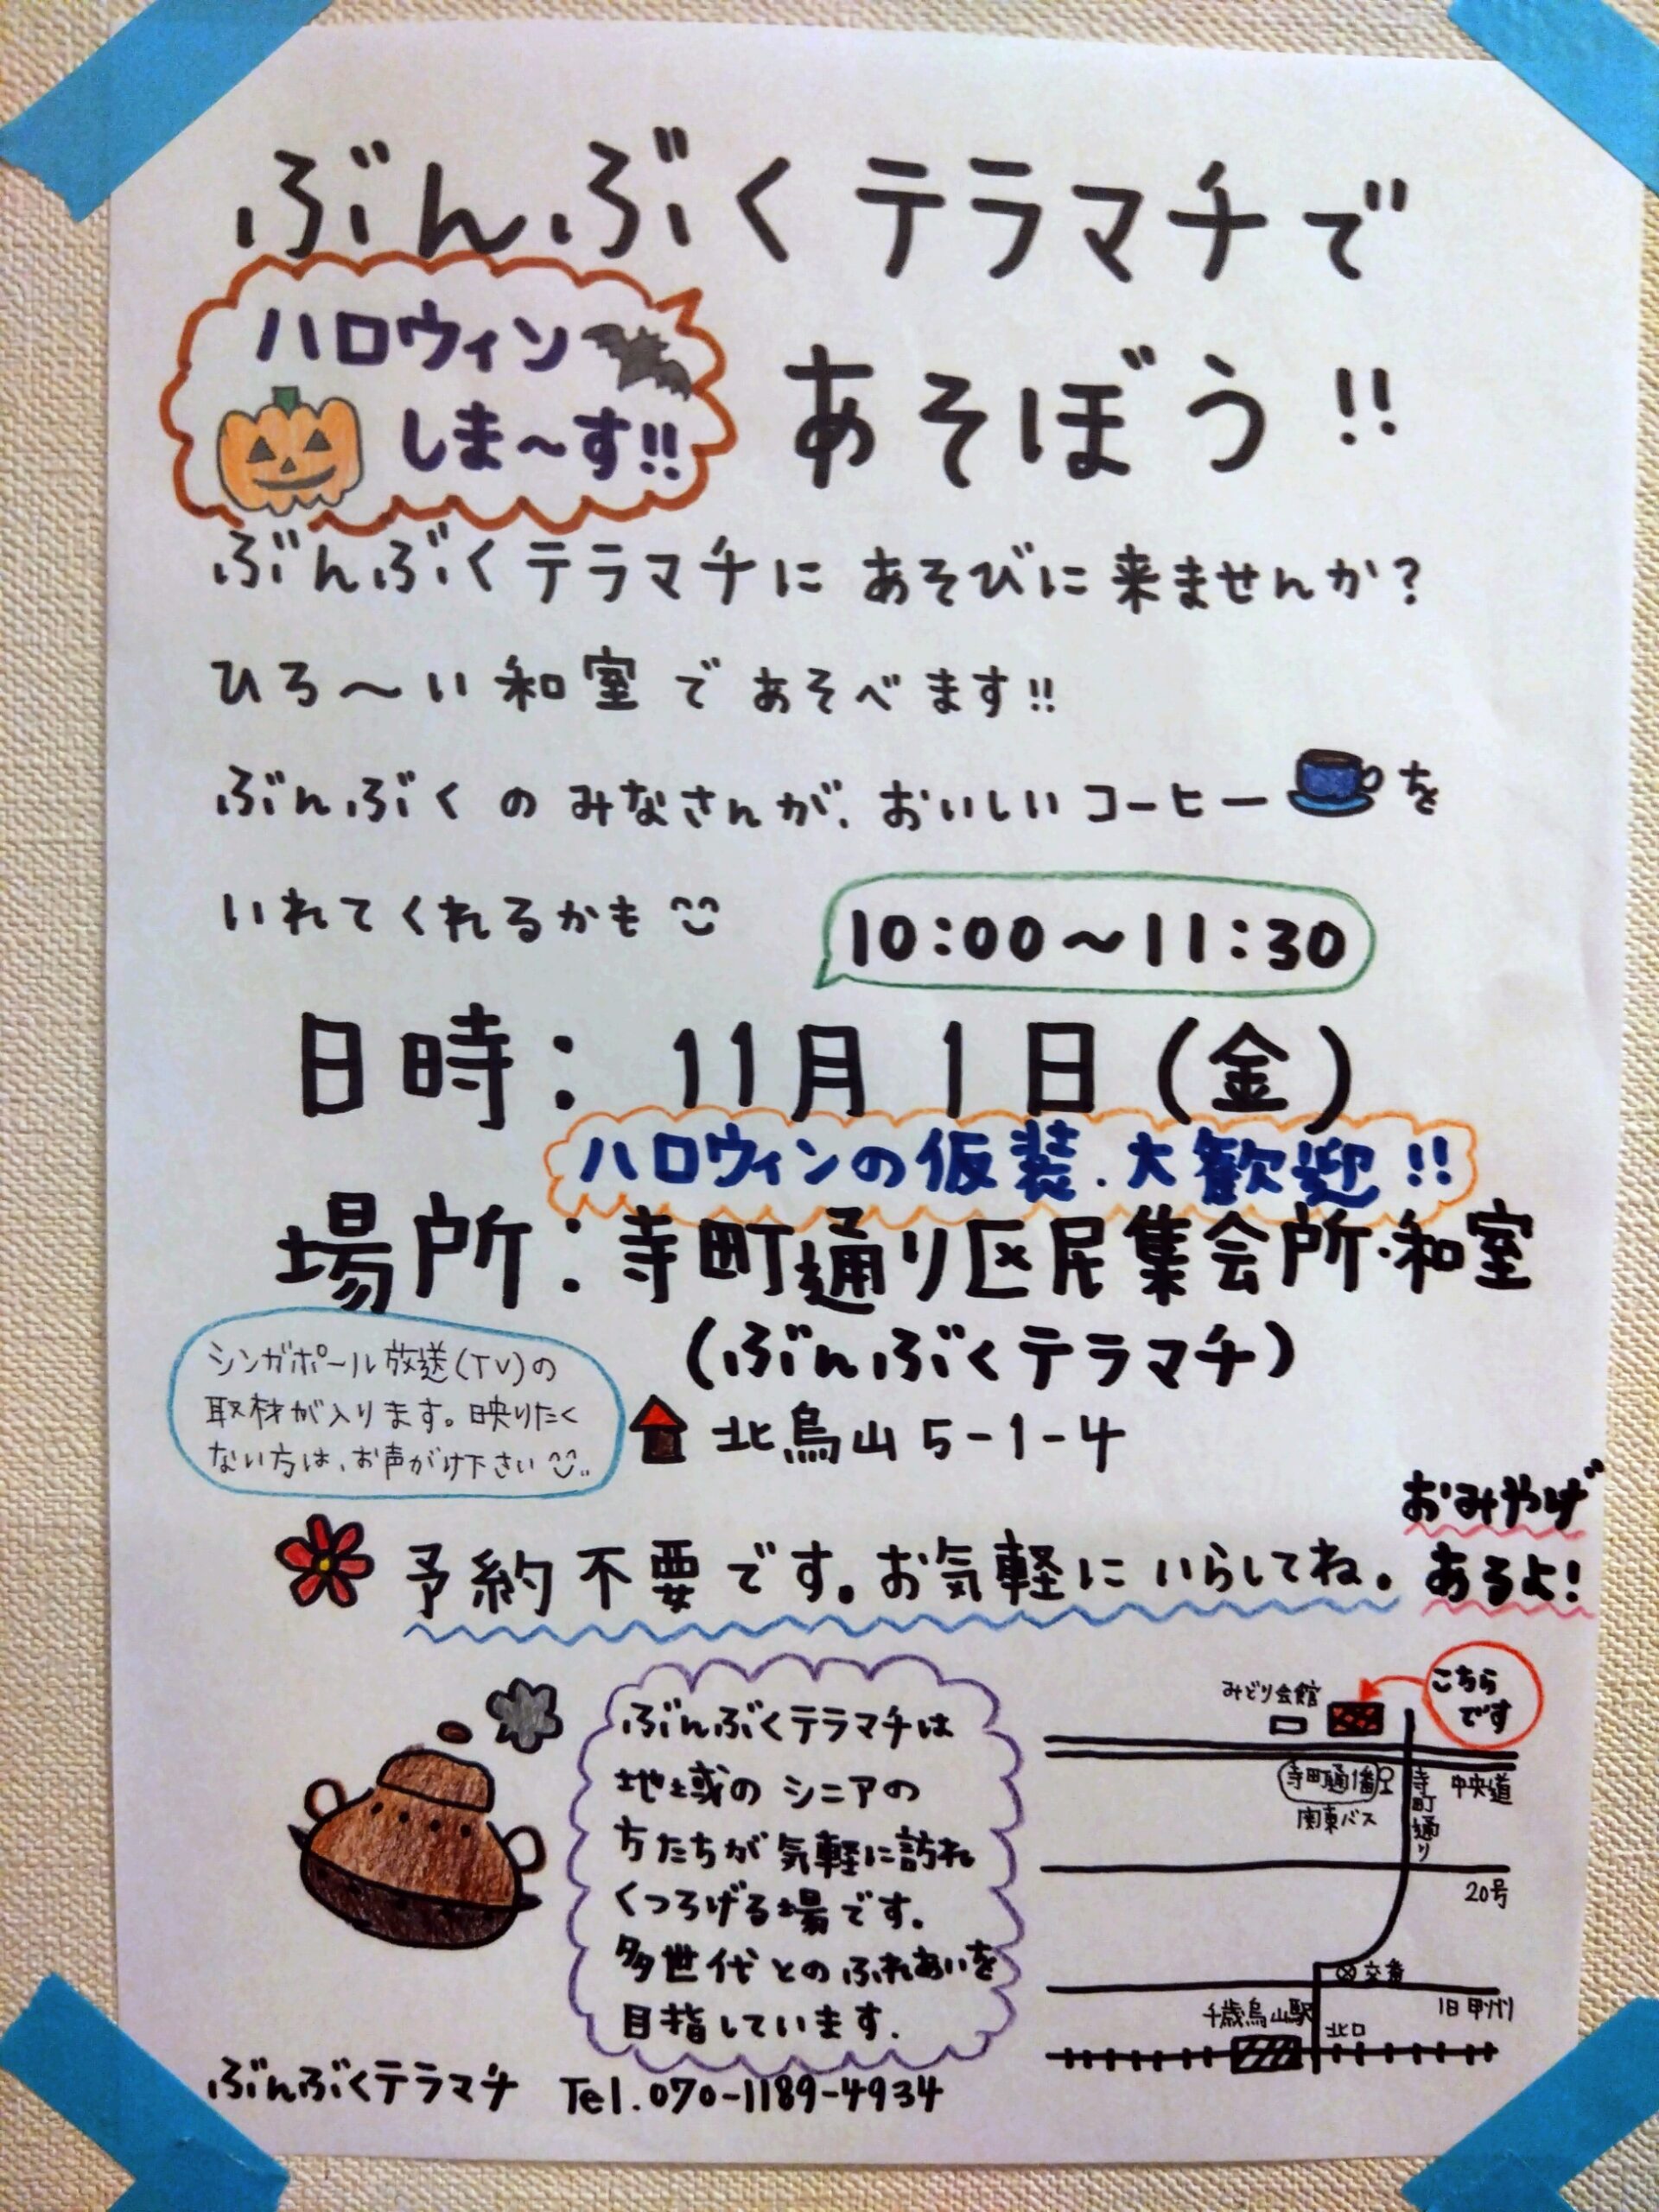 ぶんぶくテラマチで
あそぼう!!
ハロウィン
しま〜す!!
ぶんぶくテラマチに あそびに来ませんか?
ひろ〜い和室であそべます!!
ぶんぶくのみなさんが、おいしいコーヒーを
いれてくれるかも
10:00〜11:30
日時: 11月1日(金)
ハロウィンの仮装、大歓迎!!
場所:寺町通り区民集会所・和室
(ぶんぶくテラマチ)
北烏山5-1-4
シンガポール放送(TV)の
取材が入ります。映りたく
ない方は、お声がけ下さい
予約不要です。お気軽にいらしてね。
おみやげ
あるよ!
ぶんぶくテラマチは
地域のシニアの
方たちが気軽に訪れ
くつろげる場です。
多世代とのふれあいを
目指しています。
みどり会館
こちら
です
寺町通1番
関東バス
寺町通り
中央道
20号
交番
旧甲州
千歳烏山駅
北口
ぶんぶくテラマチ Tel.070-1189-4934